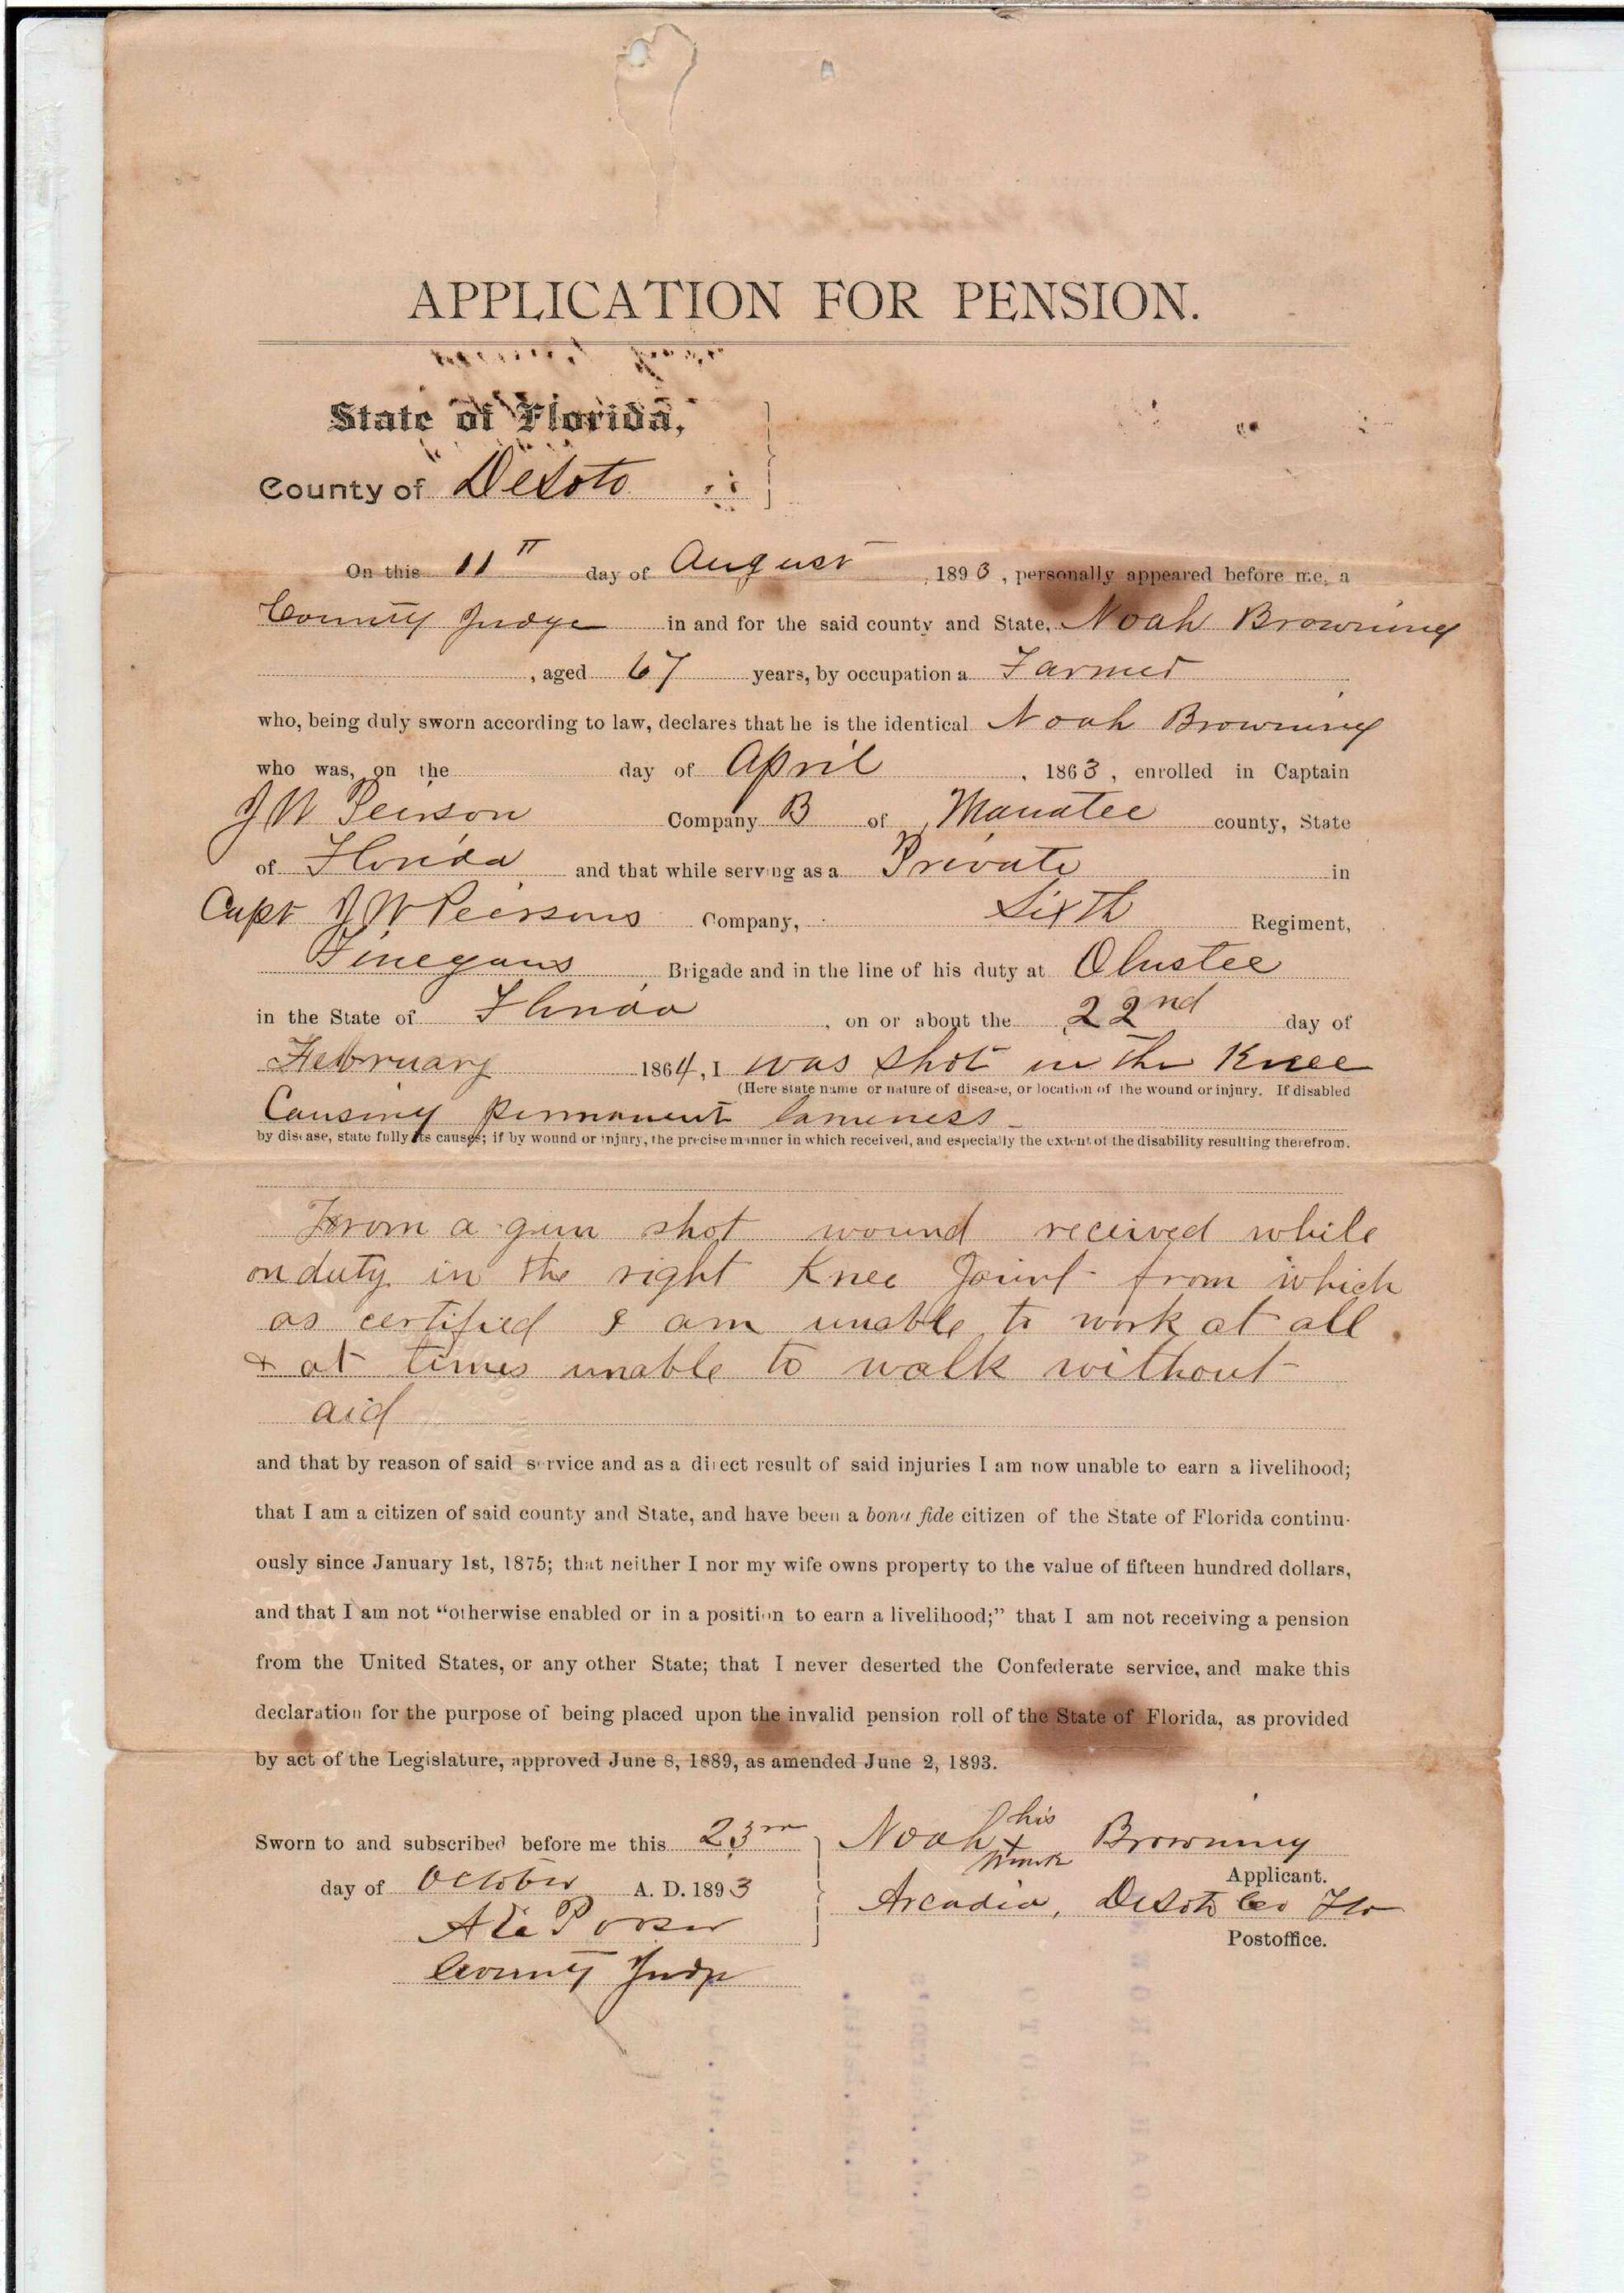 APPLICATION FOR PENSION.
State of Florida,
County of DeSoto
On this 11th day of August, 1893, personally appeared before me, a
County Judge in and for the said county and State, Noah Browning
, aged 67 years, by occupation a Farmer
who, being duly sworn according to law, declares that he is the identical Noah Browning
who was, on the day of April, 1863, enrolled in Captain
J W Peirson Company B of Manatee county, State
of Florida and that while serving as a Private in
Capt J W Peersons Company, Sixth Regiment,
Finegans Brigade and in the line of his duty at Olustee
in the State of Florida, on or about the 22nd day of
February 1864, I was shot in the Knee
(Here state name or nature of disease, or location of the wound or injury. If disabled
Causing permanent lameness
by disease, state fully its causes; if by wound or injury, the precise manner in which received, and especially the extent of the disability resulting therefrom.
From a gun shot wound received while
on duty in the right Knee Joint from which
as certified I am unable to work at all
& at times unable to walk without
aid
and that by reason of said service and as a direct result of said injuries I am now unable to earn a livelihood;
that I am a citizen of said county and State, and have been a bona fide citizen of the State of Florida continu-
ously since January 1st, 1875; that neither I nor my wife owns property to the value of fifteen hundred dollars,
and that I am not “otherwise enabled or in a position to earn a livelihood;” that I am not receiving a pension
from the United States, or any other State; that I never deserted the Confederate service, and make this
declaration for the purpose of being placed upon the invalid pension roll of the State of Florida, as provided
by act of the Legislature, approved June 8, 1889, as amended June 2, 1893.
Sworn to and subscribed before me this 23rd
day of October A. D. 1893
County Judge
Noah his x mark Browning
Applicant.
Arcadia, DeSoto Co Fla
Postoffice.